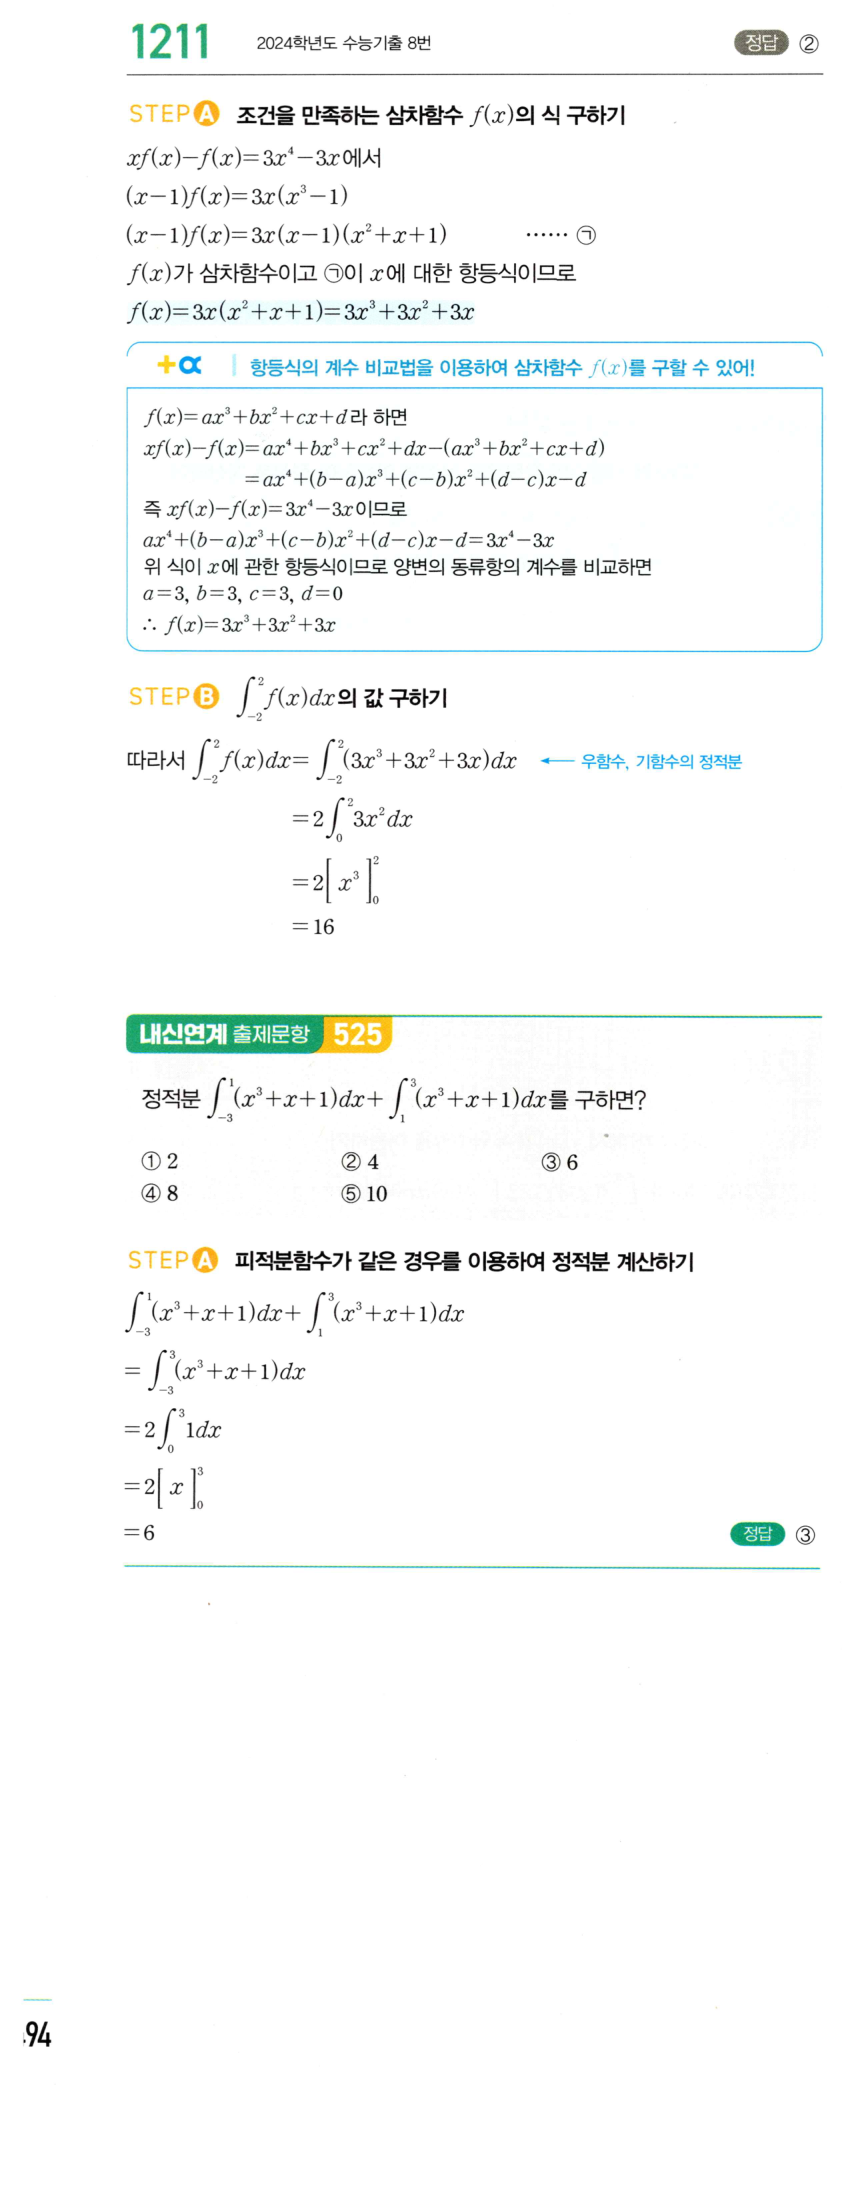 1211 2024학년도 수능기출 8번 정답 ②
STEP A 조건을 만족하는 삼차함수 f(x)의 식 구하기
xf(x)−f(x)=3x⁴−3x에서
(x−1)f(x)=3x(x³−1)
(x−1)f(x)=3x(x−1)(x²+x+1) …… ㉠
f(x)가 삼차함수이고 ㉠이 x에 대한 항등식이므로
f(x)=3x(x²+x+1)=3x³+3x²+3x
+α 항등식의 계수 비교법을 이용하여 삼차함수 f(x)를 구할 수 있어!
f(x)=ax³+bx²+cx+d라 하면
xf(x)−f(x)=ax⁴+bx³+cx²+dx−(ax³+bx²+cx+d)
=ax⁴+(b−a)x³+(c−b)x²+(d−c)x−d
즉 xf(x)−f(x)=3x⁴−3x이므로
ax⁴+(b−a)x³+(c−b)x²+(d−c)x−d=3x⁴−3x
위 식이 x에 관한 항등식이므로 양변의 동류항의 계수를 비교하면
a=3, b=3, c=3, d=0
∴ f(x)=3x³+3x²+3x
STEP B ∫₋₂² f(x)dx의 값 구하기
따라서 ∫₋₂² f(x)dx=∫₋₂² (3x³+3x²+3x)dx ← 우함수, 기함수의 정적분
=2∫₀² 3x²dx
=2[x³]₀²
=16
내신연계 출제문항 525
정적분 ∫₋₃¹ (x³+x+1)dx+∫₁³ (x³+x+1)dx를 구하면?
① 2 ② 4 ③ 6
④ 8 ⑤ 10
STEP A 피적분함수가 같은 경우를 이용하여 정적분 계산하기
∫₋₃¹ (x³+x+1)dx+∫₁³ (x³+x+1)dx
=∫₋₃³ (x³+x+1)dx
=2∫₀³ 1dx
=2[x]₀³
=6 정답 ③
94